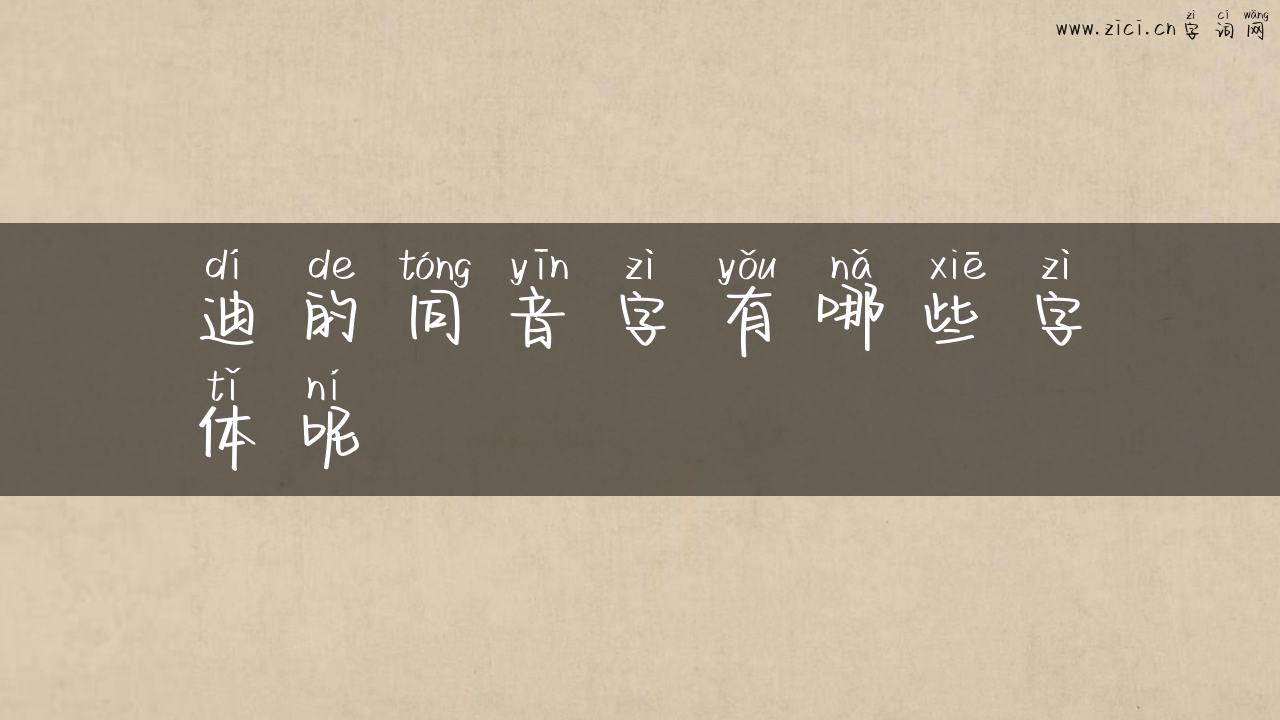 zì cí wǎng
www.zici.cn 字词网
dí de tóng yīn zì yǒu nǎ xiē zì
迪的同音字有哪些字
tǐ ní
体呢